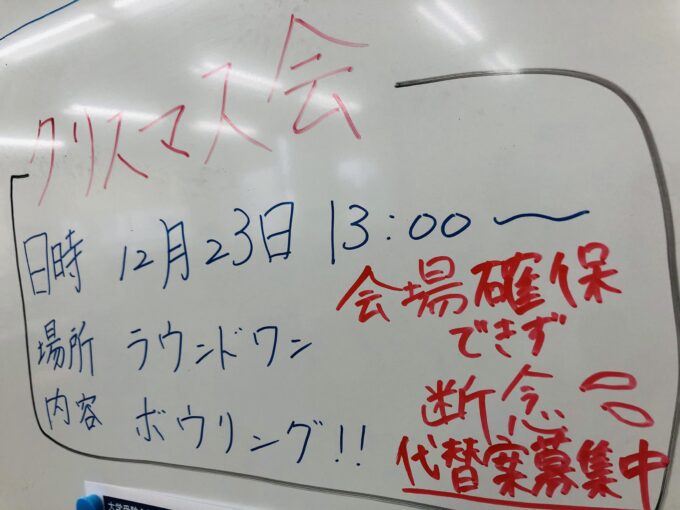 クリスマス会
日時 12月23日 13:00〜
場所 ラウンドワン
内容 ボウリング!!
会場確保
できず
断念
代替案募集中